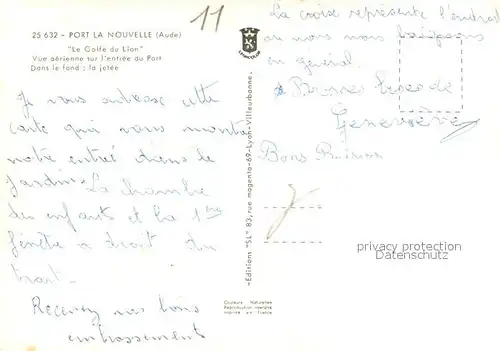 25 632 - PORT LA NOUVELLE (Aude)
"Le Golfe du Lion"
Vue aérienne sur l'entrée du Port
Dans le fond : la jetée
11
Je vous adresse cette
carte qui vous montre
notre entrée dans le
jardin. La chambre
des enfants et la 1ère
fenêtre a droit du
haut.
Recevez nos bons
embrassements
LYONCOLOR
-Editions "SL" 83, rue magenta-69-Lyon-Villeurbanne-
La croix représente l'endroit
ou nous nous baignons
en général.
Bonnes bises de
Geneviève
Bons Baisers
Couleurs Naturelles
Reproduction interdite
Imprimé en France
privacy protection
watermark